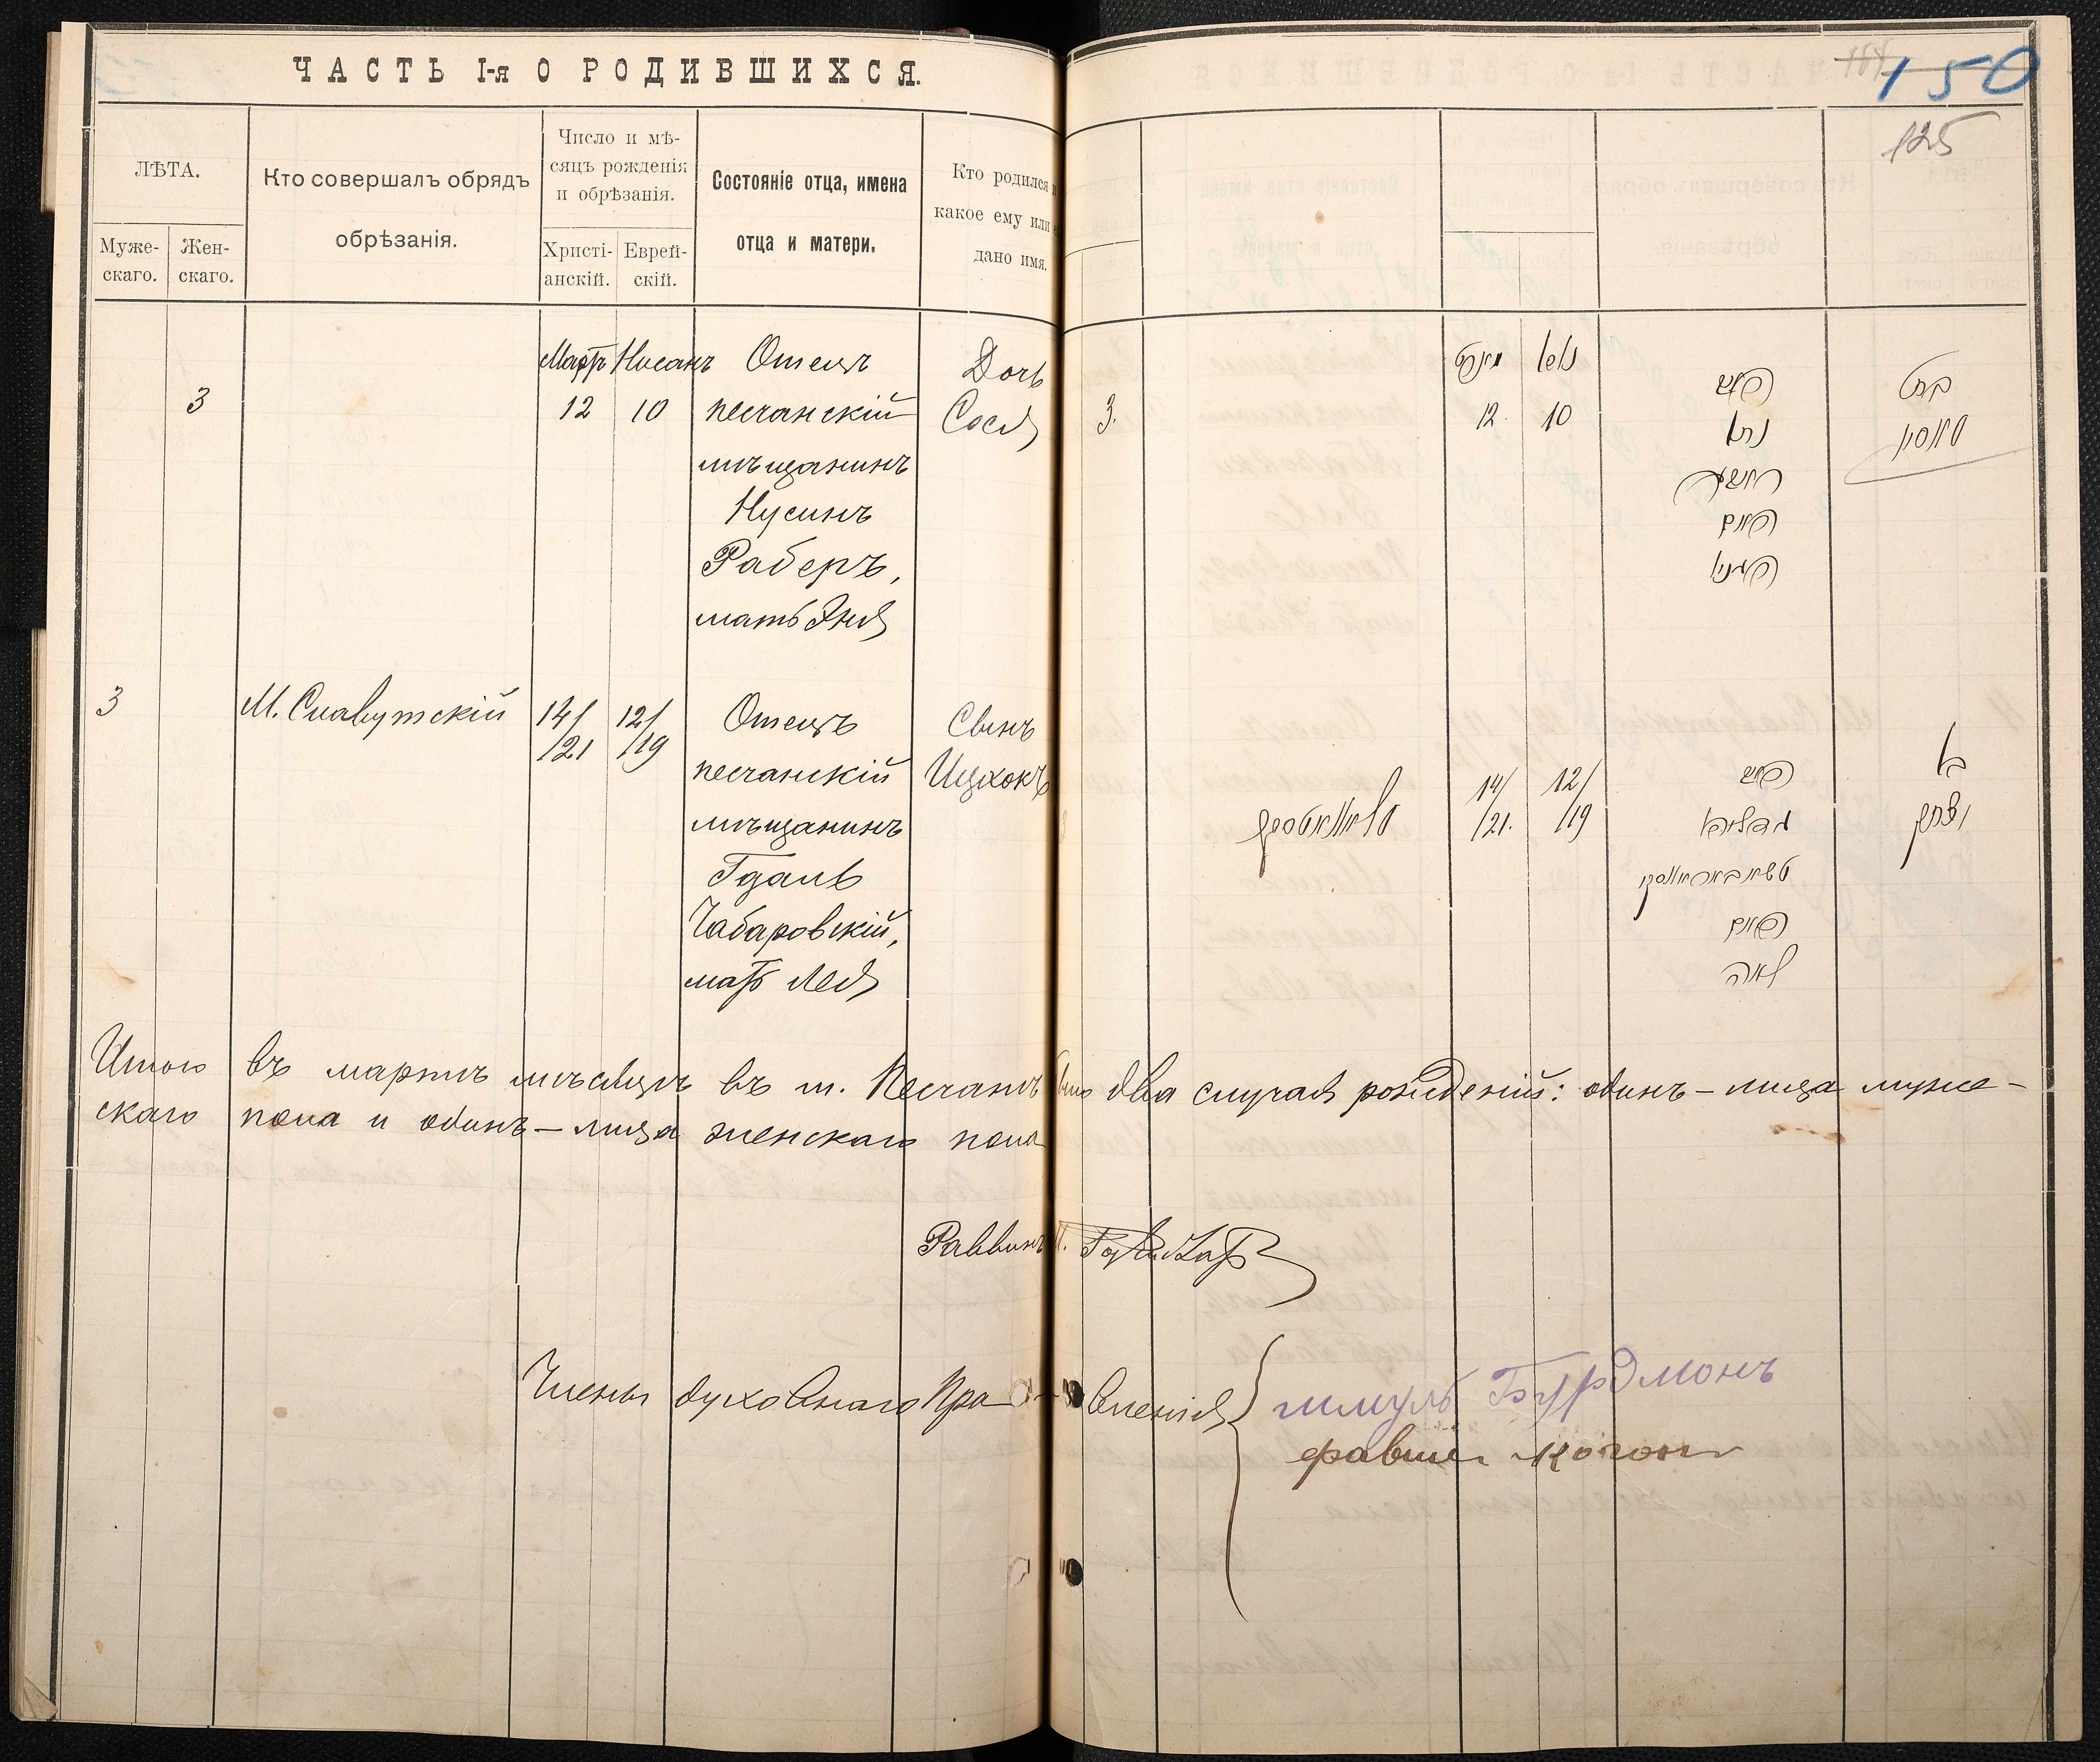 ЧАСТЬ I-я О РОДИВШИХСЯ.
150
125
ЛѢТА.
Муже-
скаго.
Жен-
скаго.
Кто совершалъ обрядъ
обрѣзанія.
Число и мѣ-
сяцъ рожденія
и обрѣзанія.
Христі-
анскій.
Еврей-
скій.
Состояніе отца, имена
отца и матери.
Кто родился и
какое ему или
дано имя.
3
Мартъ
12
Нисанъ
10
Отецъ
песчанскій
мѣщанинъ
Нусинъ
Раберъ,
мать Эня
Дочь
Сося
3.
מארט
12.
ניסן
10
נתן
בת
סאסיא
3
М. Славутскій
14/
/21
12/
/19
Отецъ
песчанскій
мѣщанинъ
Гдаль
Чабаровскій,
мать Лея
Сынъ
Ицхокъ
14/
/21.
12/
/19
גדליהו
לאה
בן
יצחק
Итого въ мартѣ мѣсяцѣ въ м. Песчанѣ было два случая рожденій: одинъ – лица муже-
скаго пола и одинъ – лица женскаго пола
Раввинъ
Члены духовнаго Пра-
вленія
шмуль Бурдмонъ